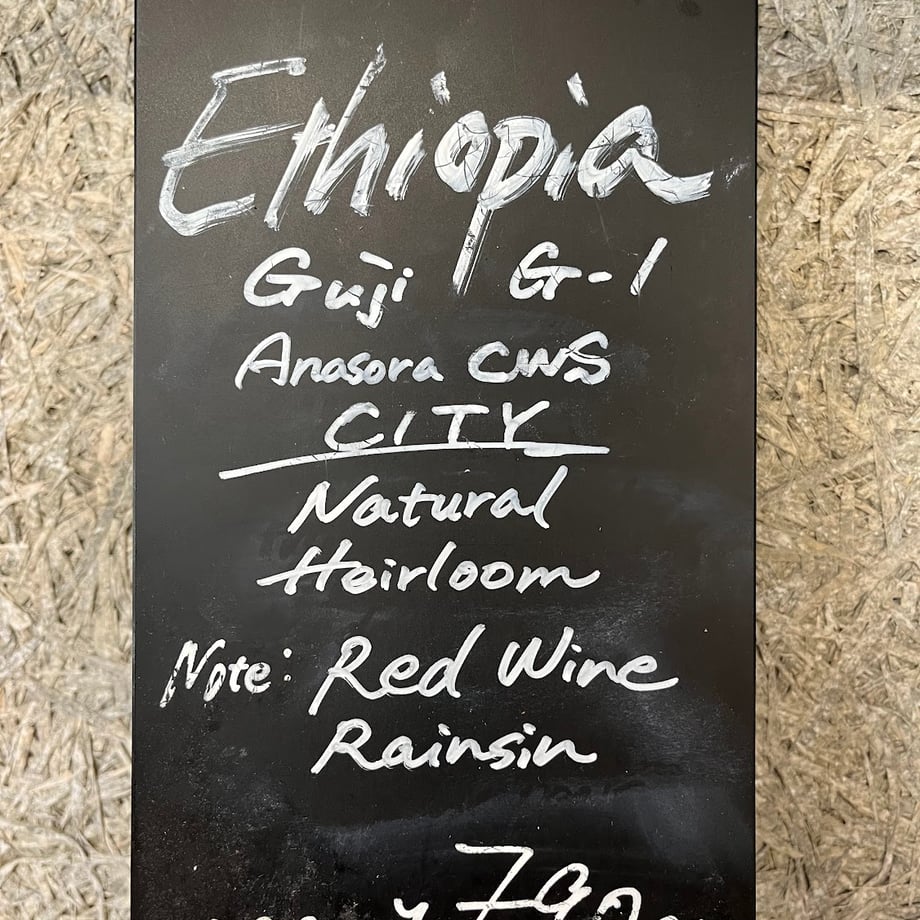 Ethiopia
Guji G-1
Anasora CWS
CITY
Natural
Heirloom
Note: Red Wine
Rainsin